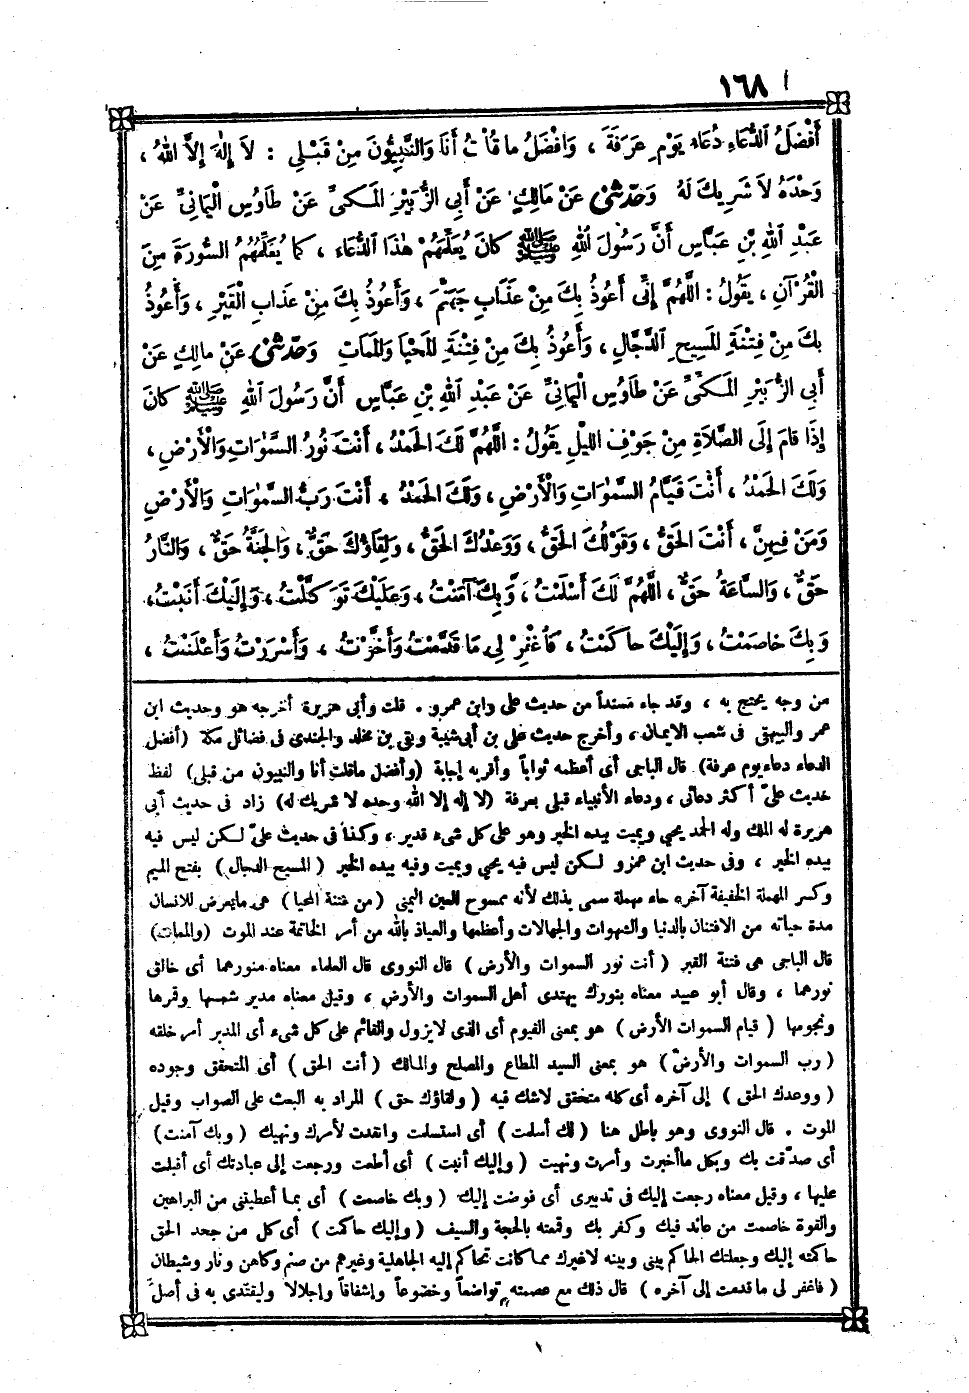 ١٦٨
أَفْضَلُ الدُّعَاءِ دُعَاءُ يَوْمِ عَرَفَةَ ، وَأَفْضَلُ ما قُلْتُ أَنَا وَالنَّبِيُّونَ مِنْ قَبْلِي : لاَ إِلٰهَ إِلاَّ اللهُ ،
وَحْدَهُ لاَ شَرِيكَ لَهُ وَحَدَّثَنِي عَنْ مَالِكٍ عَنْ أَبِي الزُّبَيْرِ الْمَكِّيِّ عَنْ طَاوُسٍ الْيَمَانِيِّ عَنْ
عَبْدِ اللهِ بْنِ عَبَّاسٍ أَنَّ رَسُولَ اللهِ ﷺ كَانَ يُعَلِّمُهُمْ هٰذَا الدُّعَاءَ ، كَمَا يُعَلِّمُهُمُ السُّورَةَ مِنَ
الْقُرْآنِ ، يَقُولُ : اللَّهُمَّ إِنِّي أَعُوذُ بِكَ مِنْ عَذَابِ جَهَنَّمَ ، وَأَعُوذُ بِكَ مِنْ عَذَابِ الْقَبْرِ ، وَأَعُوذُ
بِكَ مِنْ فِتْنَةِ الْمَسِيحِ الدَّجَّالِ ، وَأَعُوذُ بِكَ مِنْ فِتْنَةِ الْمَحْيَا وَالْمَمَاتِ وَحَدَّثَنِي عَنْ مالِكٍ عَنْ
أَبِي الزُّبَيْرِ الْمَكِّيِّ عَنْ طَاوُسٍ الْيَمَانِيِّ عَنْ عَبْدِ اللهِ بْنِ عَبَّاسٍ أَنَّ رَسُولَ اللهِ ﷺ كانَ
إِذَا قامَ إِلَى الصَّلاَةِ مِنْ جَوْفِ اللَّيْلِ يَقُولُ : اللَّهُمَّ لَكَ الْحَمْدُ ، أَنْتَ نُورُ السَّمٰوَاتِ وَالْأَرْضِ ،
وَلَكَ الْحَمْدُ ، أَنْتَ قَيَّامُ السَّمٰوَاتِ وَالْأَرْضِ ، وَلَكَ الْحَمْدُ ، أَنْتَ رَبُّ السَّمٰوَاتِ وَالْأَرْضِ
وَمَنْ فِيهِنَّ ، أَنْتَ الْحَقُّ ، وَقَوْلُكَ الْحَقُّ ، وَوَعْدُكَ الْحَقُّ ، وَلِقَاؤُكَ حَقٌّ ، وَالْجَنَّةُ حَقٌّ ، وَالنَّارُ
حَقٌّ ، وَالسَّاعَةُ حَقٌّ ، اللَّهُمَّ لَكَ أَسْلَمْتُ ، وَبِكَ آمَنْتُ ، وَعَلَيْكَ تَوَكَّلْتُ ، وَإِلَيْكَ أَنَبْتُ ،
وَبِكَ خاصَمْتُ ، وَإِلَيْكَ حاكَمْتُ ، فَاغْفِرْ لِي مَا قَدَّمْتُ وَأَخَّرْتُ ، وَأَسْرَرْتُ وَأَعْلَنْتُ ،
من وجه يحتج به ، وقد جاء مسنداً من حديث على وابن عمرو . قلت وأبى هريرة أخرجه هو وحديث ابن
عمر والبيهقى فى شعب الايمان ، وأخرج حديث على بن أبى شيبة وبقى بن مخلد والجندى فى فضائل مكة (أفضل
الدعاء دعاء يوم عرفة) قال الباجى أى أعظمه ثواباً وأقربه إجابة (وأفضل ماقلت أنا والنبيون من قبلى) لفظ
حديث علىّ أكثر دعائى ، ودعاء الأنبياء قبلى بعرفة (لا إله إلا الله وحده لا شريك له) زاد فى حديث أبى
هريرة له الملك وله الحمد يحيي ويميت بيده الخير وهو على كل شىء قدير ، وكذا فى حديث علىّ لـكن ليس فيه
بيده الخير ، وفى حديث ابن عمرو لـكن ليس فيه يحيي ويميت وفيه بيده الخير (المسيح الدجال) بفتح الميم
وكسر المهملة الخفيفة آخره حاء مهملة سمى بذلك لأنه ممسوح العين اليمنى (من فتنة المحيا) هى مايعرض للانسان
مدة حياته من الافتتان بالدنيا والشهوات والجهالات وأعظمها والعياذ بالله من أمر الخاتمة عند الموت (والممات)
قال الباجى هى فتنة القبر (أنت نور السموات والأرض) قال النووى قال العلماء معناه منورهما أى خالق
نورهما ، وقال أبو عبيد معناه بنورك يهتدى أهل السموات والأرض ، وقيل معناه مدبر شمسها وقمرها
ونجومها (قيام السموات الأرض) هو بمعنى القيوم أى الذى لايزول والقائم على كل شىء أى المدبر أمر خلقه
(رب السموات والأرض) هو بمعنى السيد المطاع والمصلح والمـالك (أنت الحق) أى المتحقق وجوده
(ووعدك الحق) إلى آخره أى كله متحقق لاشك فيه (ولقاؤك حق) المراد به البعث على الصواب وقيل
الموت . قال النووى وهو باطل هنا (لك أسلمت) أى استسلمت وانقدت لأمرك ونهيك (وبك آمنت)
أى صدّقت بك وبكل ماأخبرت وأمرت ونهيت (وإليك أنبت) أى أطعت ورجعت إلى عبادتك أى أقبلت
عليها ، وقيل معناه رجعت إليك فى تدبيرى أى فوضت إليك (وبك خاصمت) أى بمـا أعطيتنى من البراهين
والقوة خاصمت من عاند فيك وكفر بك وقمعته بالحجة والسيف (وإليك حاكمت) أى كل من جحد الحق
حاكمته إليك وجعلتك الحاكم بينى وبينه لاغيرك ممـا كانت تحاكم إليه الجاهلية وغيرهم من صنم وكاهن ونار وشيطان
(فاغفر لى ما قدمت إلى آخره) قال ذلك مع عصمته تواضعاً وخضوعاً وإشفاقاً وإجلالاً وليقتدى به فى أصل